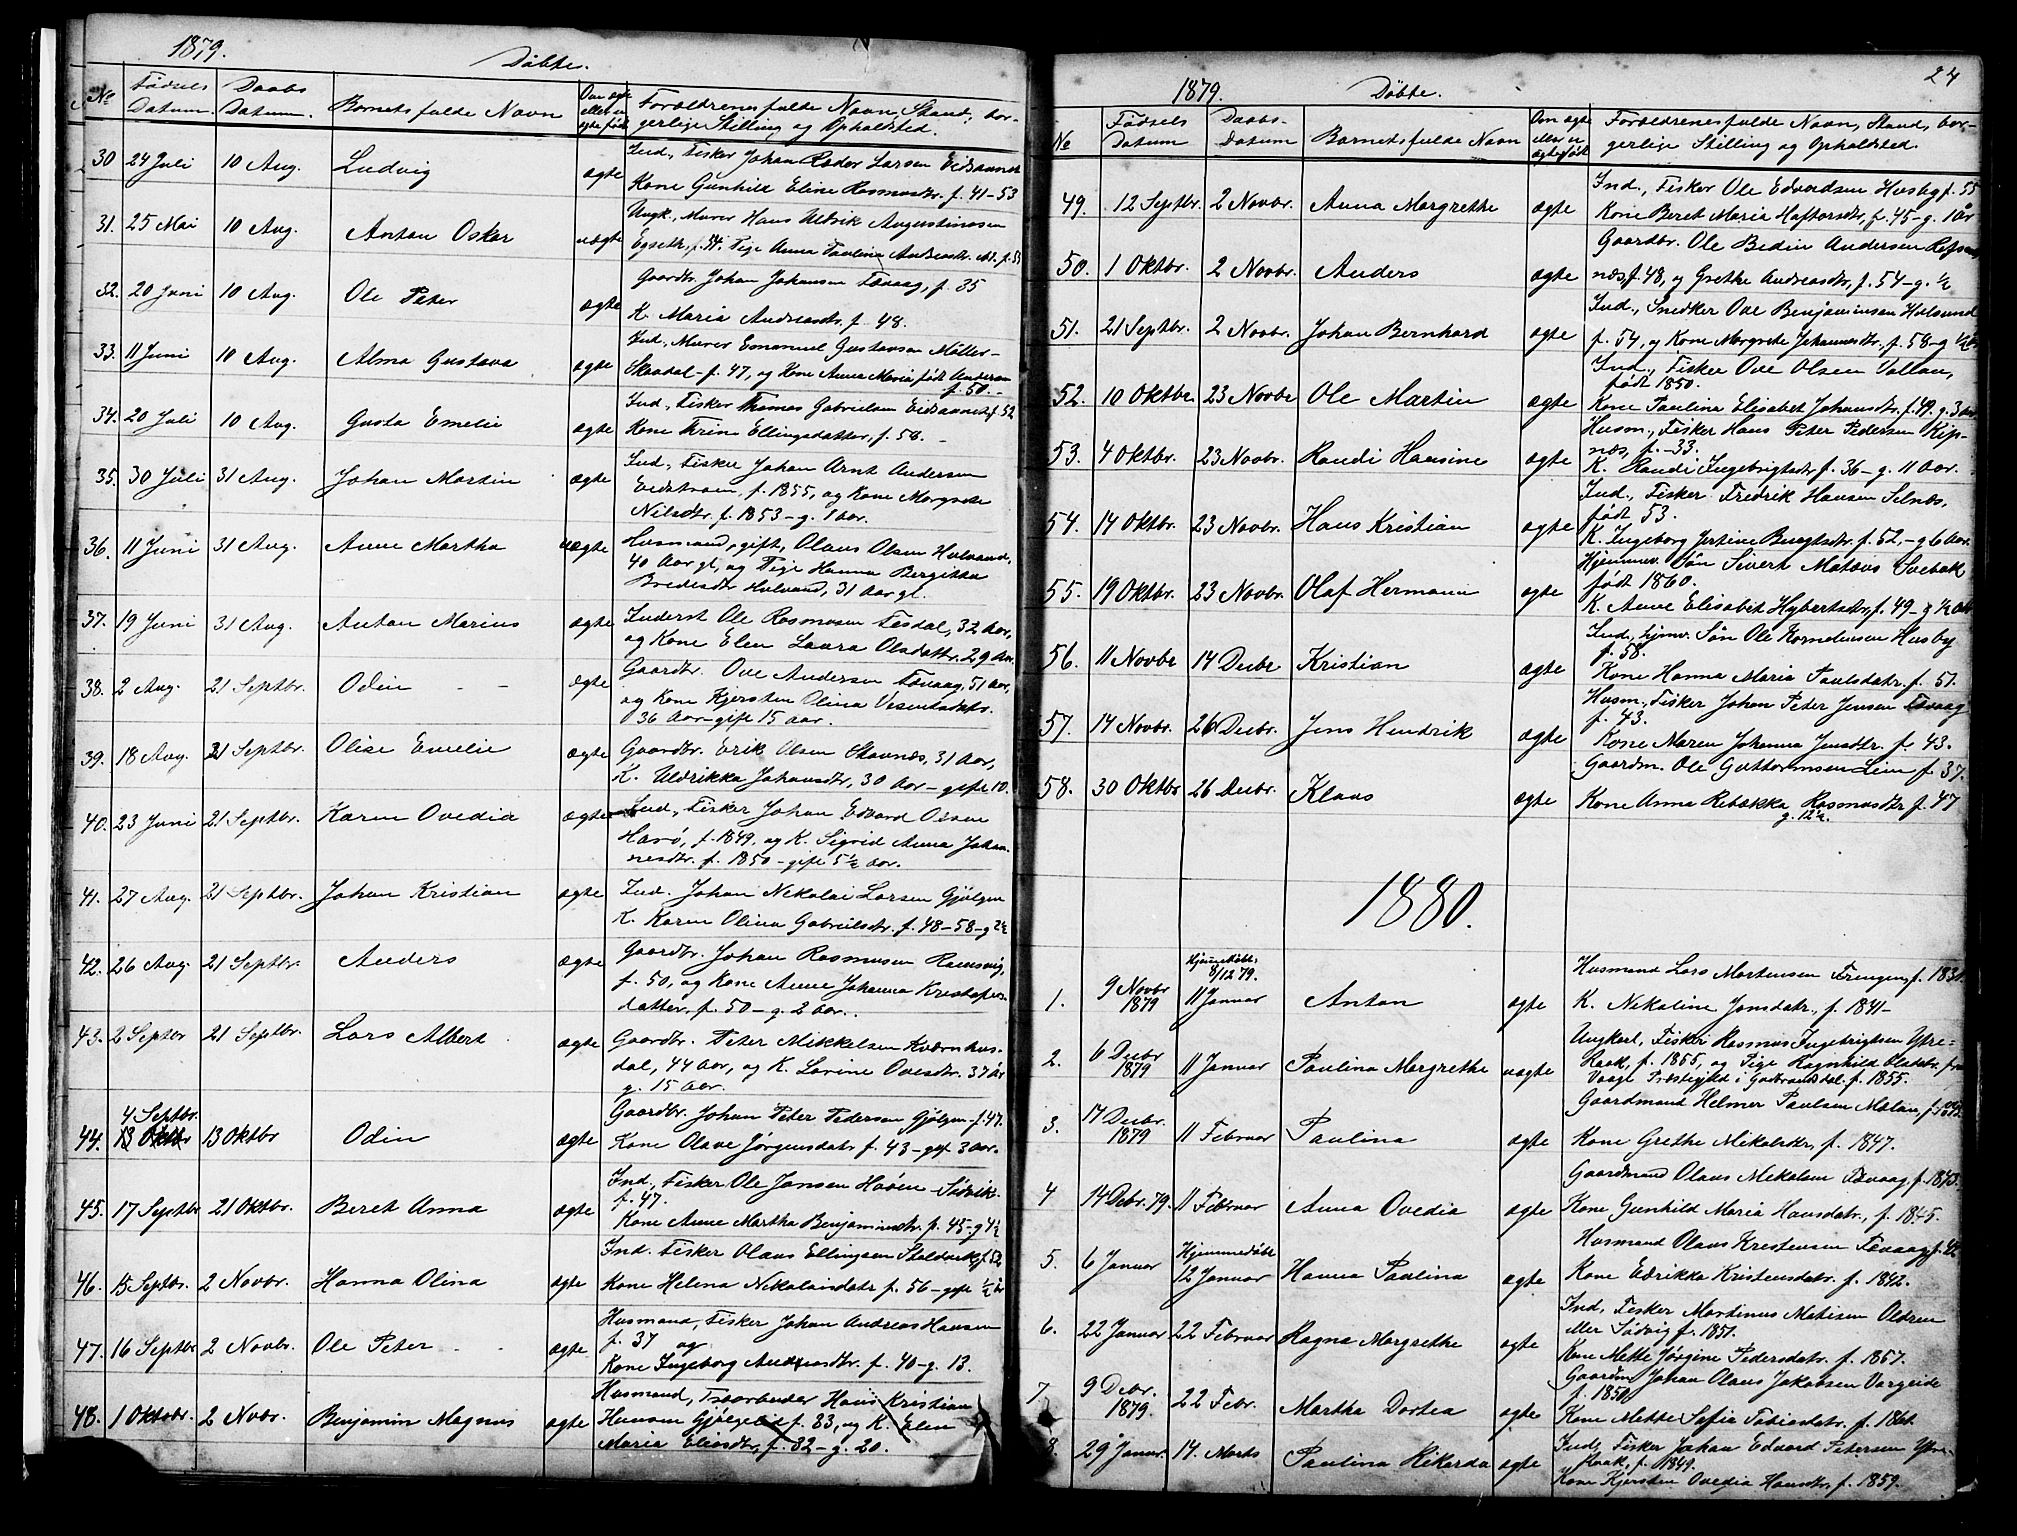 1879.
Döbte.
No
Födsels Datum.
Daabs Datum.
Barnets fulde Navn
Om ægte eller uægte født
Forældrenes fulde Navn, Stand, borgerlige Stilling og Opholdsted.
30 24 Juli 10 Aug. Ludvig ægte Ind., Fisker Johan Rœder Larsen Eidsaunet
Kone Gunhild Eline Rasmusdtr. f. 41-53
31. 25 Mai 10 Aug. Anton Oskar uægte Ungk., Murer Hans Uldrik Augustinusen
Pige Anna Paulina Andreasdtr.
32. 20 Juni 10 Aug. Ole Peter ægte Gaardbr. Johan Johansen Tævaag, f. 35
K. Maria Andreasdtr. f. 48.
33. 11 Juni 10 Aug. Alma Gustava ægte Ind., Murer Emanuel Gustavsen Möller-
Skaadal- f. 47, og Kone Anna Maria født Andersen
f. 50.-
34. 20 Juli 10 Aug. Gusta Emelie ægte Ind., Fisker Thomas Gabrielsen Eidsaunet f. 52
Kone Trine Ellingsdatter, f. 58. -
35. 30 Juli 31 Aug. Johan Martin ægte Ind., Fisker Johan Arnt Andersen
Eidstrøm, f. 1855, og Kone Margrete
Nilsdtr. f. 1853 - g. 1 Aar.
36. 11 Juni 31 Aug. Anne Martha uægte Husmand, gift, Olaus Olsen Hulvand,
40 Aar gl, og Pige Hanna Bergitta
Bredesdtr Hulvand, 31 Aar gl.
37. 19 Juni 31 Aug. Anton Marius ægte Inderst Ole Rasmusen Tesdal, 32 Aar,
og Kone Elen Laura Olsdattr. 29 Aar.
38. 2 Aug. 21 Septbr. Odin - - ægte Gaardbr. Ove Andersen Tævaag, 51 Aar,
og Kone Kjersten Olina Vesentsdatr.
36 Aar - gift 15 Aar.
39. 18 Aug. 21 Septbr. Olise Emelie ægte Gaardbr. Erik Olsen Stavnæs, 31 Aar,
K. Uldrikka Johansdtr, 30 Aar - gifte 10.
40. 23 Juni 21 Septbr. Karen Ovedia ægte Ind., Fisker Johan Edvard Olsen
Harø, f. 1849, og K. Sigrid Anna Johan-
nesdtr. f. 1850 - gift 5½ Aar.
41. 27 Aug. 21 Septbr. Johan Kristian ægte Ind. Johan Nikolai Larsen Gjølgen
K. Karen Olina Gabrielsdtr. f. 48-58 - g 2½
42. 26 Aug 21 Septbr. Anders ægte Gaardbr. Johan Rasmusen Ramsvig,
f. 50, og Kone Anne Johanna Kristofers-
datter, f. 50 - g. 2 Aar.
43. 2 Septbr 21 Septbr. Lars Albert ægte Gaardbr. Peter Mikkelsen Kværnhus-
dal, 44 Aar, og K. Lovine Ovesdtr. 37 Aar
g. 15 Aar.
4 Septbr.
44. 13 Oktbr 13 Oktbr Odin ægte Gaardbr. Johan Peter Pedersen Gjølgen f. 47.
Kone Olave Jørgensdatr f. 43 - gift 3 Aar.
45. 17 Septbr 21 Oktbr. Beret Anna ægte Ind., Fisker Ole Jansen Haöen Sødvik
f. 47.
Kone Anne Martha Benjaminsdtr. f. 45 - g 4½
46. 15 Septbr. 2 Novbr. Hanna Olina ægte Ind. Fisker Olaus Ellingsen Staldvik f. 52
Kone Helena Nikolaisdatr f. 56 - gift ½ Aar
47. 16 Septbr 2 Novbr. Ole Peter ægte Husmand, Fisker Johan Andreas Hansen
f. 37 og
Kone Ingeborg Andreasdtr. f. 40 - g. 13.
48. 1 Oktobr. 2 Novbr. Benjamin Magnus ægte Husmand, Træarbeider Hans Kristian
Hansen Gjølgalid f. 33, og K. Elen
Maria Eliasdtr, f. 32 - g. 20.
24
1879.
Döbte.
No
Födsels Datum
Daabs- Datum
Barnets fulde Navn
Om ægte eller uægte født
Forældrenes fulde Navn, Stand, borgerlige Stilling og Opholdsted.
49. 12 Septbr. 2 Novbr. Anna Margrethe ægte Ind., Fisker Ole Edvardsen Husby f. 55
Kone Beret Maria Haftorsdtr, f. 45 - g. 1 år
50. 1 Oktbr. 2 Novbr. Anders ægte Gaardbr. Ole Bedin Andersen Refsnes
næs, f. 48, og Grethe Andreasdtr, f. 54 - g. ½
51. 21 Septbr. 2 Novbr. Johan Bernhard ægte Ind., Snedker Ove Benjaminsen Hulsund
f. 54, og Kone Margrete Johannesdtr. f. 58 - g ½
52. 10 Oktbr 23 Novbr Ole Martin ægte Ind., Fisker Ove Olsen Vallan,
født 1850.
Kone Paulina Elisabet Johansdtr. f. 49. g. 3 aar
53. 4 Oktbr. 23 Novbr. Randi Hansine ægte Husm., Fisker Hans Peter Pedersen Kip-
næs, f. -33.
K. Randi Ingebrigtsdtr f. 36 - g. 11 Aar.
54. 14 Oktbr. 23 Novbr. Hans Kristian ægte Ind., Fisker Fredrik Hansen Selnæs,
født 53.
K. Ingeborg Jertine Bengtsdtr. f. 52, - g 6 Aar.
55. 19 Oktbr. 23 Novbr. Olaf Hermann ægte Hjemmev. Søn Sivert Matæus Svebak
født 1860.
K. Anne Elisabet Hybertsdtr, f. 49 - g ½ Aar
56. 11 Novbr 14 Decbr Kristian ægte Ind., hjmv. Søn Ole Kornelensen Husby
f. 58.
Kone Hanna Maria Paulsdatr. f. 57.
57. 14 Novbr. 26 Decbr. Jens Hendrik ægte Husm., Fisker Johan Peter Jensen Tævaag
f. 43.
Kone Maren Johanna Jensdtr. f. 43.
58. 30 Oktbr 26 Decbr. Klaus ægte Gaardm. Ole Guttormsen Lein f. 37.
Kone Anna Rebækka Rasmusdtr f. 47
g. 12½.
1880.
1. 9 Novbr 1879 Hjemmedöbt 8/12 79. 11 Januar Anton ægte Husmand Lars Mortensen Trengen, f. 1834.
K. Nikoline Jonsdatr., f. 1841-
2. 6 Decbr 1879 11 Januar Paulina Margrethe uægte Ungkarl, Fisker Rasmus Ingebrigtsen Ytre-
Raak, f. 1855, og Pige Ragnhild Olsdatr. fra
Vaage Præstegjeld i Gudbrandsdal. f. 1855.
3. 17 Decbr. 1879 11 Februar Paulina ægte Gaardmand Helmer Paulsen Mælan,
Kone Grethe Mikalsdtr, f. 1847.
4 14 Debr. 79. 11 Februar Anna Ovedia ægte Gaardmand Olaus Mikalsen Tævaag f. 1843.
Kone Gunhild Maria Hansdatr., f. 1845.
5. 6 Januar Hjemmedöbt 12 Januar Hanna Paulina ægte Husmand Olaus Kristensen Tævaag f. 42
Kone Edrikka Kristensdatr. f. 1842.
6. 22 Januar 22 Februar Ragna Margrethe ægte Ind, Fisker Martinus Matisen Oldren
eller Sødvig f. 1851.
Kone Mette Jørgine Pedersdatr. f. 1857.
7. 9 Debr. 1879. 22 Febr. Martha Dortea ægte Gaardm Johan Olaus Jakobsen Vargeide
f. 1850
Kone Mette Sofia Tobiasdatr. f.
8. 29 Januar. 14. Marts Paulina Rikarda ægte Ind, Fisker Johan Edvard Petersen Ytre-
Raak, f. 1849.
Kone Kjersten Ovedia Hansdtr, f. 1859.